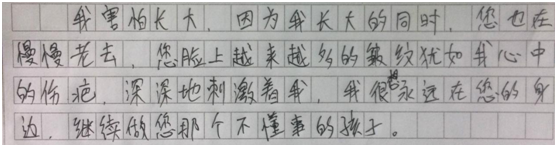 我害怕长大，因为我长大的同时，您也在
慢慢老去，您脸上越来越多的皱纹犹如我心中
的伤疤，深深地刺激着我，我很想永远在您的身
边，继续做您那个不懂事的孩子。